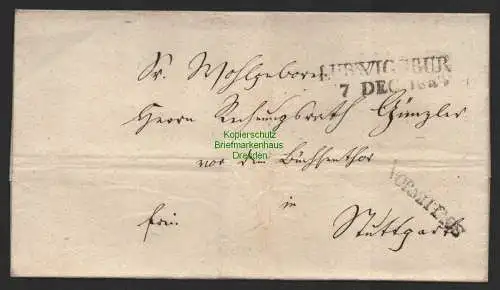 Sr. Wohlgeboren
LUDWIGSBUR
7 DEC
Herrn Rechnungsrath Günzler
Kopierschutz
Briefmarkenhaus
Dresden
vor dem Büchsenthor
in
frei
Stuttgart